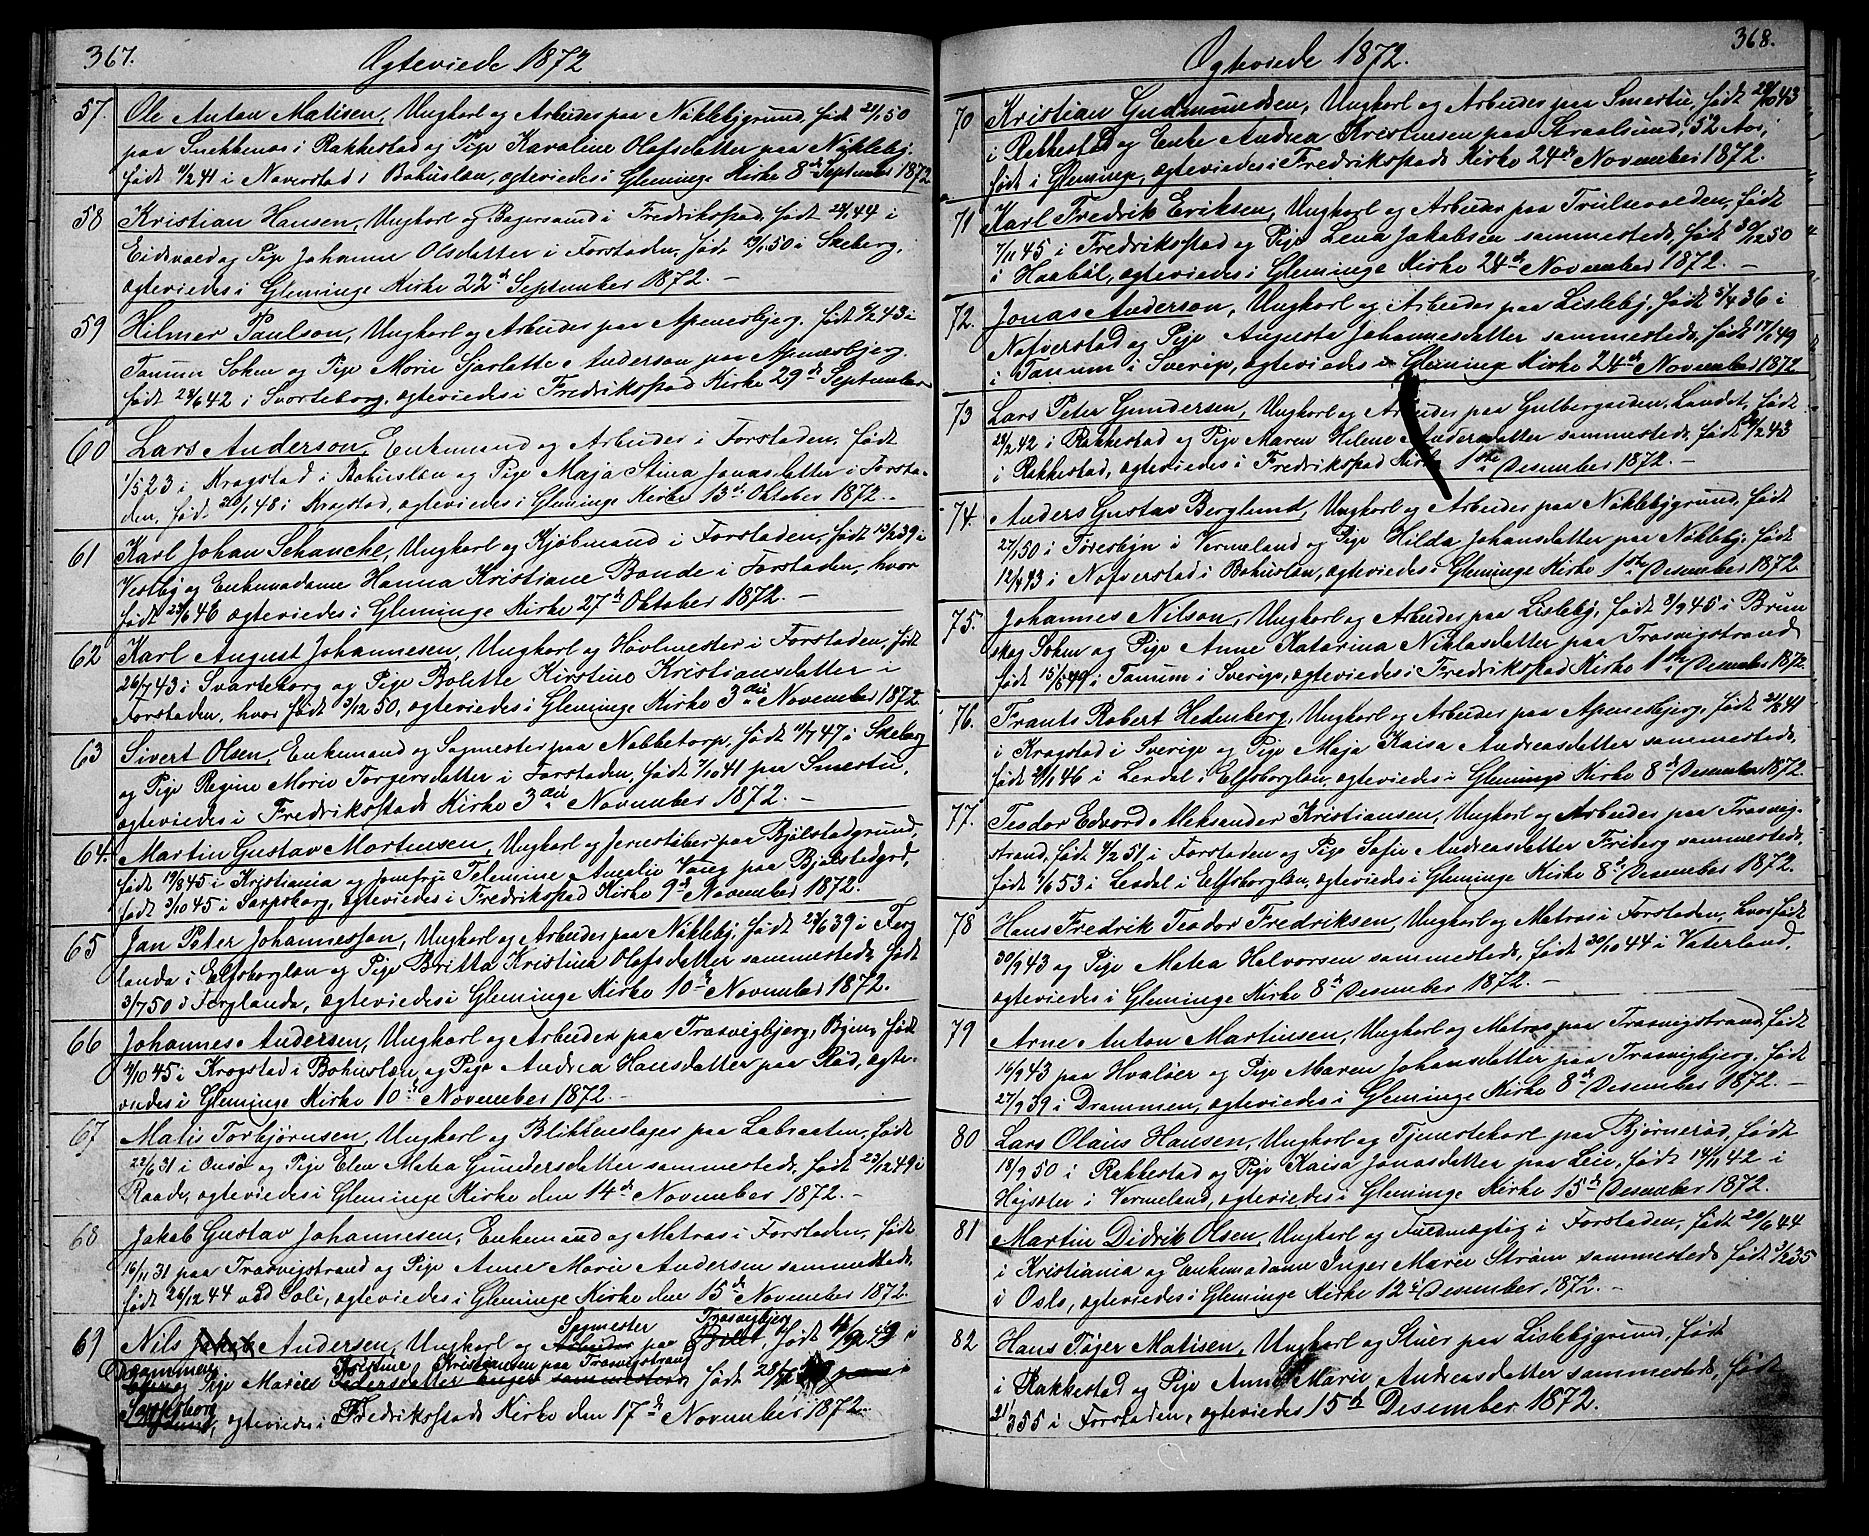 367.
Ægteviede 1872
57. Ole Anton Matisen, Ungkarl og Arbeider paa Nøklebygrund, født 21/1 50
paa Snekkenæs i Rakkestad og Pige Karoline Olafsdatter paa Nøkleby,
født 11/2 41 i Naverstad i Bohuslæn, ægteviedes i Glemminge Kirke 8de September 1872
58 Kristian Hansen, Ungkarl og Bagersvend i Fredrikstad, født 24/1 44 i
Eidsvold og Pige Johanne Olsdatter i Forstaden, født 19/1 50 i Skeberg,
ægteviedes i Glemminge Kirke 22de September 1872. —
59 Hilmer Paulson, Ungkarl og Arbeider paa Apenesbjerg, født 6/2 43 i
Tanum Sokn og Pige Marie Sjarlotte Anderson paa Apenesbjerg,
født 24/6 42 i Svarteborg, ægteviedes i Fredrikstad Kirke 29de September
60 Lars Anderson, Enkemand og Arbeider i Forstaden, født
1/5 23 i Krogstad i Bohuslæn og Pige Maja Stina Jonasdatter i Forsta-
den, født 20/1 48 i Krogstad, ægteviedes i Glemminge Kirke 13de Oktober 1872. —
61 Karl Johan Schancke, Ungkarl og Kjøbmand i Forstaden, født 13/2 39 i
Vestby og Enkemadame Hanna Kristiane Bonde i Forstaden, hvor
født 23/6 46 ægteviedes i Glemminge Kirke 27de Oktober 1872. —
62 Karl August Johannesen, Ungkarl og Hovlmester i Forstaden, født
26/7 43 i Svarteborg og Pige Bolette Kirstine Kristiansdatter i
Forstaden, hvor født 3/12 50, ægteviedes i Glemminge Kirke 3die November 1872
63 Sivert Olsen, Enkemand og Sagmester paa Nabbetorp, født 11/7 47 i Skeberg
og Pige Regine Marie Torgersdatter i Forstaden, født 7/10 41 paa Smertu,
ægteviedes i Fredrikstads Kirke 3die November 1872. —
64. Martin Gustav Mortensen, Ungkarl og Jernstøber paa Bjølstadgrund,
født 19/8 45 i Kristiania og Jomfru Telemine Amalie Vang paa Bjølstadgrd,
født 3/10 45 i Sarpsborg, ægteviedes i Fredrikstad Kirke 9de November 1872.
65 Jan Peter Johannesson, Ungkarl og Arbeider paa Nøkleby, født 23/6 39 i Færg
landa i Elfsborglæn og Pige Britta Kristina Olafsdatter sammesteds, født
3/7 50 i Færglanda, ægteviedes i Glemminge Kirke 10de November 1872.
66 Johannes Andersen, Ungkarl og Arbeider paa Trosvigbjerg, Byen, født
4/10 45 i Krogstad i Bohuslæn og Pige Andrea Hansdatter paa Rød, ægte-
viedes i Glemminge Kirke 10de November 1872. —
67 Matis Torbjørnsen, Ungkarl og Blikkenslager paa Labraaten, født
22/6 31 i Onsø og Pige Elen Matea Gundersdatter sammesteds, født 23/12 49 i
Raade, ægteviedes i Glemminge Kirke den 14de November 1872. —
68 Jakob Gustav Johannesen, Enkemand og Matros i Forstaden, født
16/11 31 paa Trosvigstrand og Pige Anne Marie Andersen sammesteds,
født 26/12 44 ved Soli, ægteviedes i Glemminge Kirke den 15de November 1872.
Sagmester Trosvigbjerg
69 Nils Jakob Andersen, Ungkarl og Arbeider paa Bilet, født 4/9 49 i
Drammen Kristine Kristiansen paa Trosvigstrand
og Pige Marie Pedersdatter Enger sammesteds, født 28/
Sarpsborg
, ægteviedes i Fredrikstads Kirke den 17de November 1872.
368.
Ægteviede 1872.
70 Kristian Gudmundsen, Ungkarl og Arbeider paa Smertu, født 29/10 43
i Rakkestad og Enke Andrea Kristensen paa Straalsund, 52 Aar,
født i Glemminge, ægteviedes i Fredrikstads Kirke 24de November 1872.
71 Karl Fredrik Eriksen, Ungkarl og Arbeider paa Trulsevolden, født
7/11 45 i Fredrikstad og Pige Lena Jakobsen sammesteds, født 30/12 50
i Haabøl, ægteviedes i Glemminge Kirke 24de November 1872. —
72. Jonas Anderson, Ungkarl og Arbeider paa Lisleby, født 5/4 36 i
Nafverstad og Pige Augusta Johannesdatter sammesteds, født 17/1 49
i Tanum i Sverige, ægteviedes i Glemminge Kirke 24de November 1872
73 Lars Peter Gundersen, Ungkarl og Arbeider paa Gulbergsiden, Landet, født
28/2 42 i Rakkestad og Pige Maren Helene Andersdatter sammesteds, født 21/2 43
i Rakkestad, ægteviedes i Fredrikstad Kirke 1ste Desember 1872. —
74. Anders Gustav Berglund, Ungkarl og Arbeider paa Nøklebygrund, født
27/1 50 i Tøresbyn i Vermeland og Pige Hilda Johansdatter paa Nøkleby, født
12/4 43 i Nafverstad i Bohuslæn, ægteviedes i Glemminge Kirke 1ste Desember 1872
75. Johannes Nilson, Ungkarl og Arbeider paa Lisleby, født 3/9 45 i Brun
skog Sokn og Pige Anne Katarina Niklasdatter paa Trosvigstrand
født 15/6 49 i Tanum i Sverige, ægteviedes i Fredrikstad Kirke 1ste Desember 1872.
76. Frants Robert Hedenberg, Ungkarl og Arbeider paa Apenesbjerg, født 21/6 41
i Krogstad i Sverige og Pige Maja Kaisa Andreasdatter sammesteds,
født 21/1 46 i Lerdal i Elfsborglæn, ægteviedes i Glemminge Kirke 8de Desember 1872.
77. Teodor Edvard Aleksander Kristiansen, Ungkarl og Arbeider paa Trosvig-
strand, født 4/2 51 i Forstaden og Pige Sofie Andreasdatter Friberg sammesteds,
født 1/6 53 i Lerdal i Elfsborglæn, ægteviedes i Glemminge Kirke 8de Desember 1872.
78 Hans Fredrik Teodor Fredriksen, Ungkarl og Matros i Forstaden, hvor født
30/9 43 og Pige Matea Halvorsen sammesteds, født 30/10 44 i Vaterland,
ægteviedes i Glemminge Kirke 8de Desember 1872. —
79 Arne Anton Martinsen, Ungkarl og Matros paa Trosvigstrand, født
16/9 43 paa Hvaløer og Pige Maren Johansdatter paa Trosvigbjerg, født
27/9 39 i Drammen, ægteviedes i Glemminge Kirke 8de Desember 1872. —
80 Lars Olaus Hansen, Ungkarl og Tjenestekarl paa Bjørnerød, født
18/9 50 i Rakkestad og Pige Kaisa Jonasdatter paa Leie, født 14/11 42 i
Høgsæter i Vermeland, ægteviedes i Glemminge Kirke 15de Desember 1872.
81 Martin Didrik Olsen, Ungkarl og Fuldmægtig i Forstaden, født 29/6 44
i Kristiania og Enkemadame Inger Marie Strøm sammesteds, født 3/6 35
i Oslo, ægteviedes i Glemminge Kirke 12te Desember, 1872. —
82 Hans Tøger Matisen, Ungkarl og Stuer paa Lislebygrund, født
i Rakkestad og Pige Anne Marie Andreasdatter sammesteds, født
21/3 55 i Forstaden, ægteviedes 15de Desember 1872.